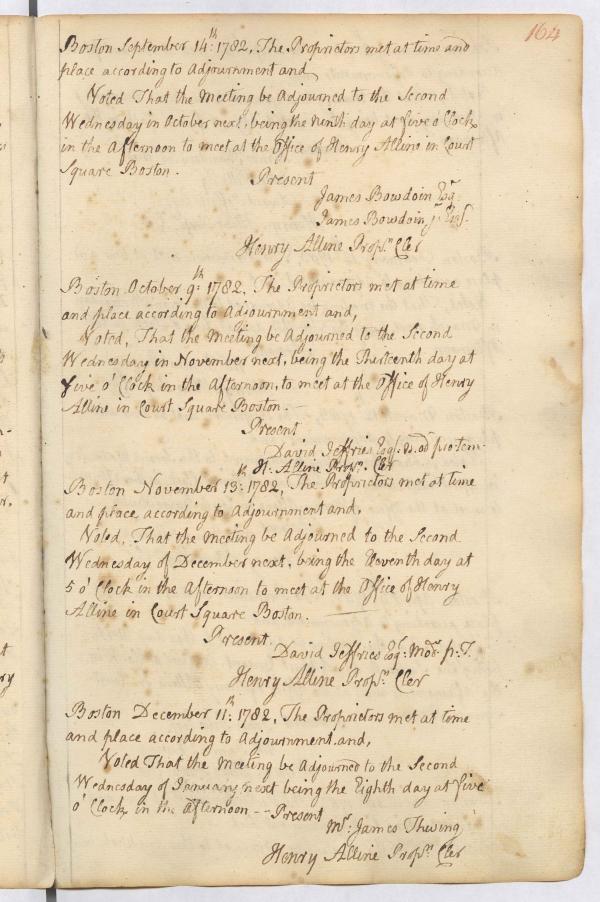 164
Boston September 14th: 1782, The Proprietors met at time and
place according to Adjournment and
Voted That the Meeting be Adjourned to the Second
Wednesday in October next, being the ninth day at five o Clock
in the Afternoon to meet at the Office of Henry Alline in Court
Square Boston.
Present
James Bowdoin Esqr
James Bowdoin jr Esqr.
Henry Alline Proprs. Cler
Boston October 9th: 1782. The Proprietors met at time
and place according to Adjournment and,
Voted, That the Meeting be Adjourned to the Second
Wednesday in November next, being the Thirteenth day at
five o' Clock in the Afternoon, to meet at the Office of Henry
Alline in Court Square Boston. —
Present
David Jeffries Esqr. Mod pro tem
H. Alline Proprs. Cler
Boston November 13th: 1782, The Proprietors met at time
and place according to Adjournment and,
Voted, That the Meeting be Adjourned to the Second
Wednesday of December next, being the Eleventh day at
5 o' Clock in the Afternoon to meet at the Office of Henry
Alline in Court Square Boston. —
Present
David Jeffries Esqr: Modr. p: T.
Henry Alline Proprs. Cler
Boston December 11th: 1782, The Proprietors met at time
and place according to Adjournment and,
Voted That the Meeting be Adjourned to the Second
Wednesday of January next being the Eighth day at five
o' Clock in the afternoon - - Present
Mr: James Thwing
Henry Alline Proprs. Cler